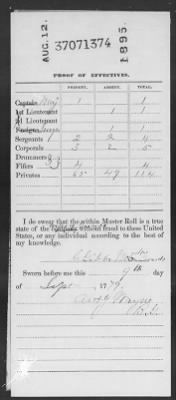 AUG. 12.
37071374
1895.
PROOF OF EFFECTIVES.
PRESENT. ABSENT. TOTAL.
Captain 1 1
1st Lieutenant 1 1
2d Lieutenant
Ensign 1 1
Sergeants 2 2 4
Corporals 3 2 5
Drummers
Fifers 4 4
Privates 65 49 114
I do swear that the within Muster Roll is a true
state of the without fraud to these United
States, or any individual according to the best of
my knowledge.
Sworn before me this 9th day
of Sept 1779.
Anty Wayne
B. G.